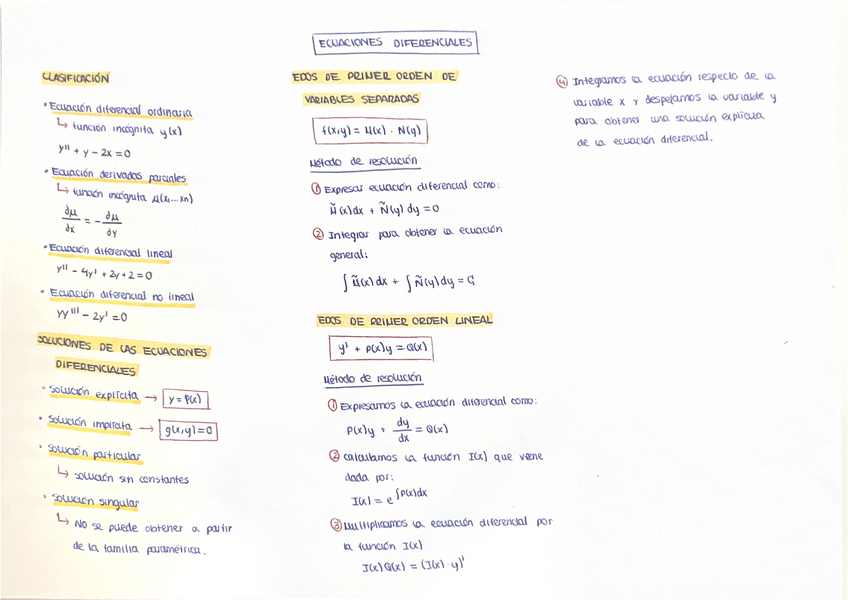 ECUACIONES DIFERENCIALES
CLASIFICACIÓN
• Ecuación diferencial ordinaria
↳ función incógnita y(x)
y'' + y - 2x = 0
• Ecuación derivadas parciales
↳ función incógnita μ(x₁...xn)
∂μ/∂x = - ∂μ/∂y
• Ecuación diferencial lineal
y'' - 4y' + 2y + 2 = 0
• Ecuación diferencial no lineal
yy''' - 2y' = 0
SOLUCIONES DE LAS ECUACIONES
DIFERENCIALES
• Solución explícita → y = f(x)
• Solución implícita → g(x,y) = 0
• Solución particular
↳ solución sin constantes
• Solución singular
↳ No se puede obtener a partir
de la familia paramétrica.
EDOS DE PRIMER ORDEN DE
VARIABLES SEPARADAS
f(x,y) = M(x) · N(y)
Método de resolución
① Expresar ecuación diferencial como:
M̃(x)dx + Ñ(y)dy = 0
② Integrar para obtener la ecuación
general:
∫M̃(x)dx + ∫Ñ(y)dy = C
EDOS DE PRIMER ORDEN LINEAL
y' + P(x)y = Q(x)
Método de resolución
① Expresamos la ecuación diferencial como:
P(x)y + dy/dx = Q(x)
② Calculamos la función I(x) que viene
dada por:
I(x) = e^∫P(x)dx
③ Multiplicamos la ecuación diferencial por
la función I(x)
I(x)Q(x) = (I(x)·y)'
④ Integramos la ecuación respecto de la
variable x y despejamos la variable y
para obtener una solución explícita
de la ecuación diferencial.